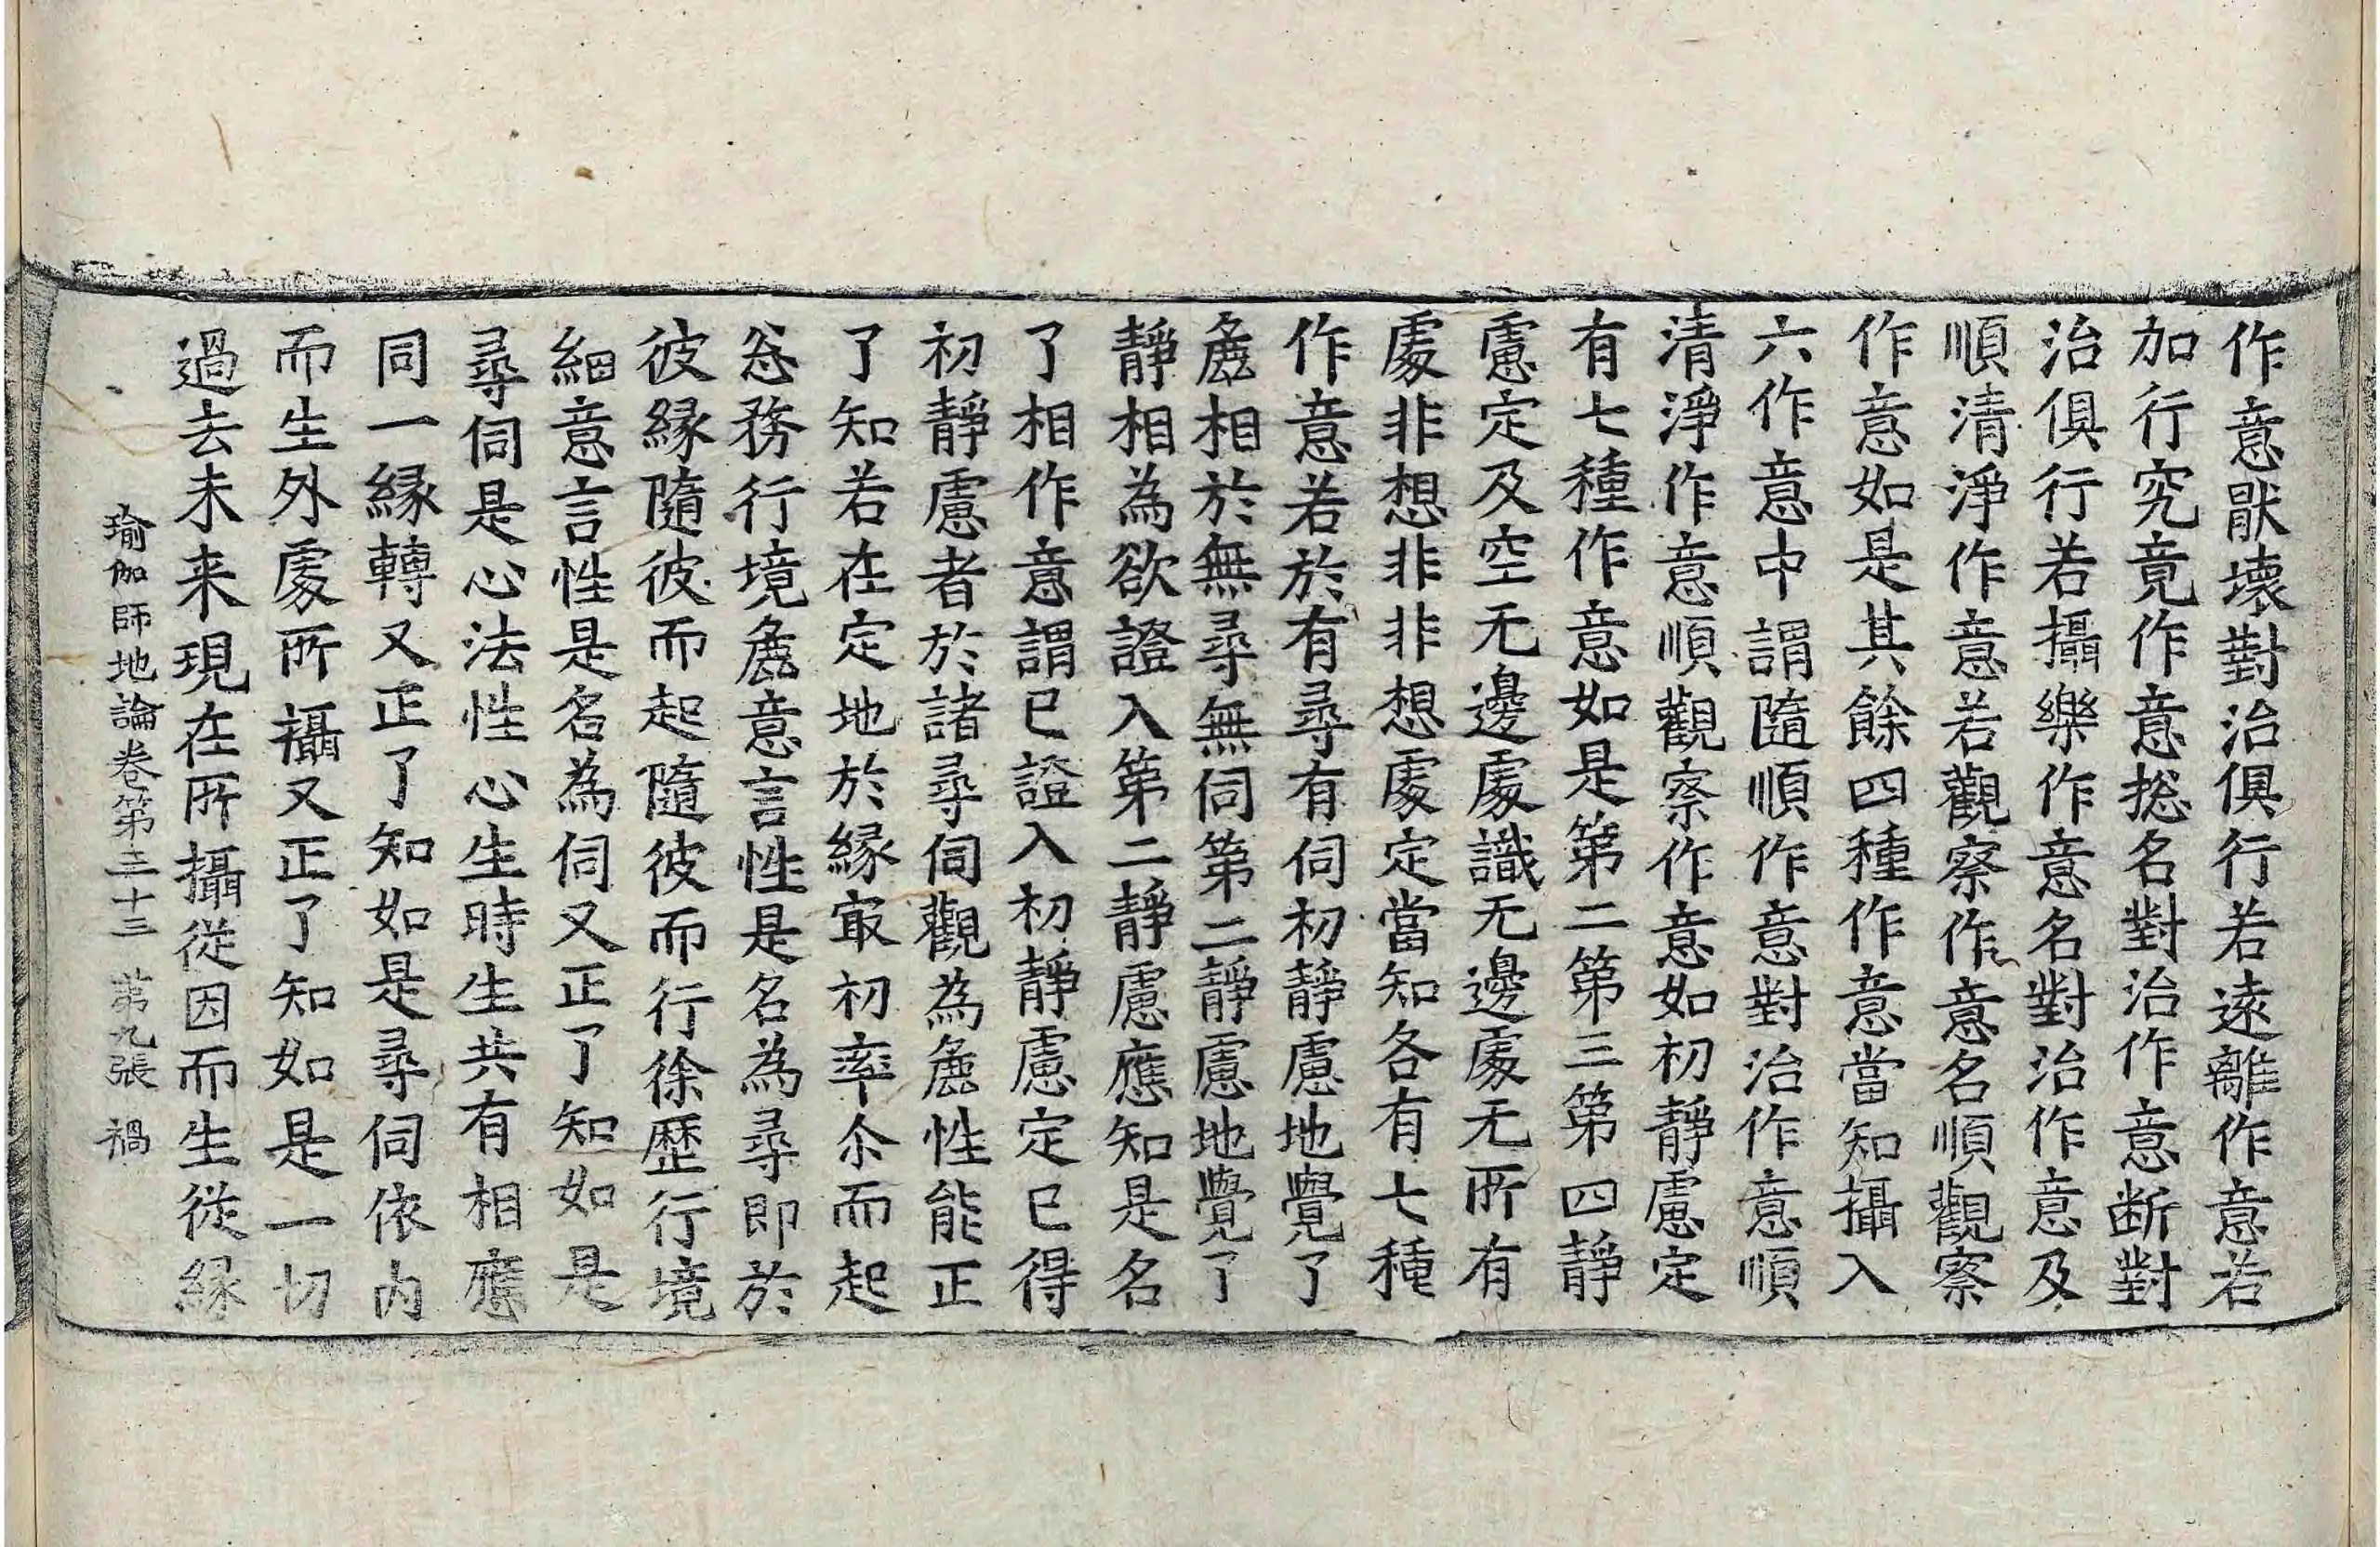 作意猒壊對治俱行若遠離作意若
加行究竟作意捴名對治作意断對
治俱行若攝樂作意名對治作意及
順清淨作意若觀察作意名順觀察
作意如是其餘四種作意當知攝入
六作意中謂隨順作意對治作意順
清淨作意順觀察作意如初靜慮定
有七種作意如是第二第三第四靜
慮定及空无邊處識无邊處无所有
處非想非非想處定當知各有七種
作意若於有尋有伺初靜慮地覺了
麁相於無尋無伺第二靜慮地覺了
靜相為欲證入第二靜慮應知是名
了相作意謂已證入初靜慮定已得
初靜慮者於諸尋伺觀為麁性能正
了知若在定地於緣㝡初率尒而起
忩務行境麁意言性是名為尋即於
彼緣隨彼而起隨彼而行徐歷行境
細意言性是名為伺又正了知如是
尋伺是心法性心生時生共有相應
同一緣轉又正了知如是尋伺依内
而生外處所攝又正了知如是一切
過去未来現在所攝從因而生從緣
瑜伽師地論卷第三十三 苐九張 禍